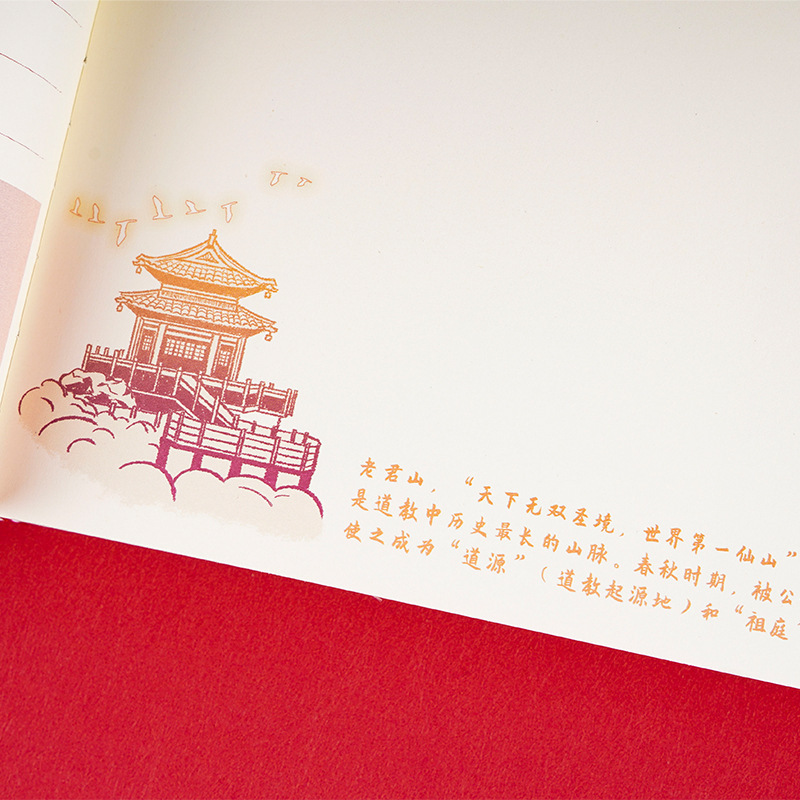 老君山，“天下无双圣境，世界第一仙山”
是道教中历史最长的山脉。春秋时期，被公
使之成为“道源”（道教起源地）和“祖庭”